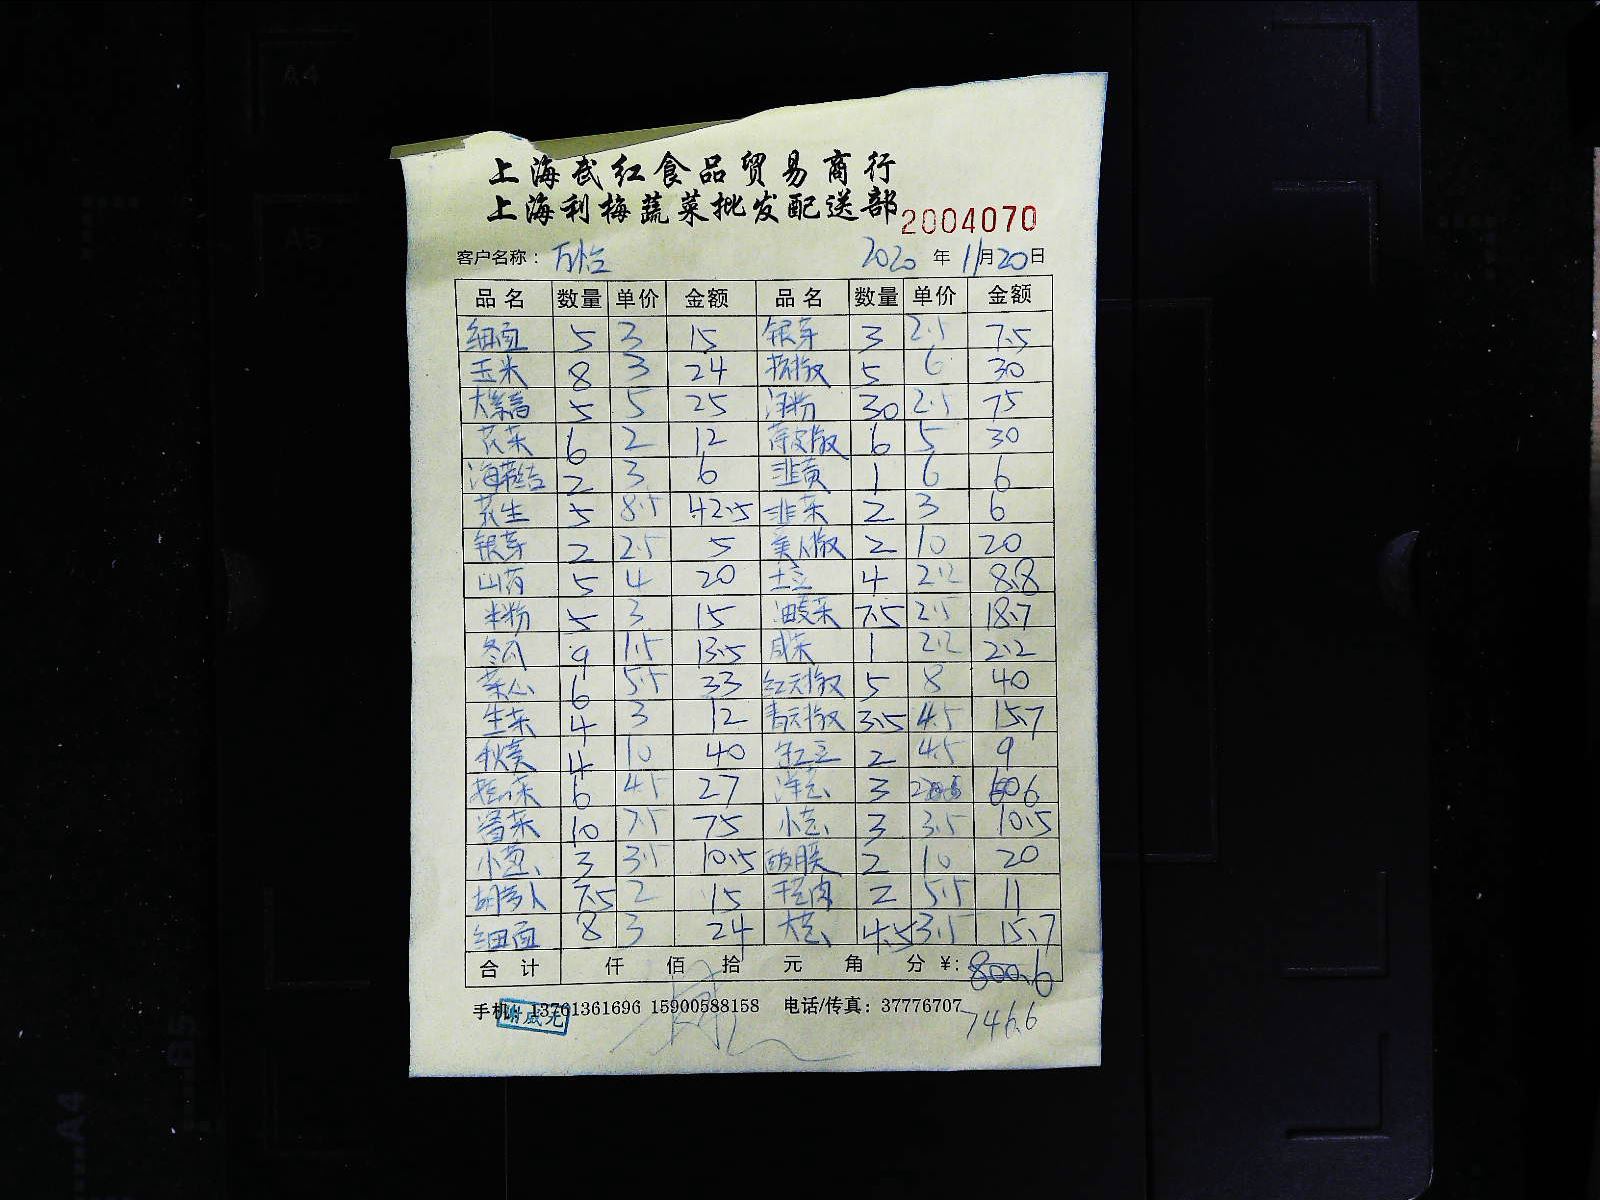 上海武红食品贸易商行
上海利梅蔬菜批发配送部 2004070
客户名称： 万怡 2020 年 11月20日
品名 数量 单价 金额 品名 数量 单价 金额
细面 5 3 15 银芽 3 2.5 7.5
玉米 8 3 24 5 6 30
5 5 25 河粉 30 2.5 75
花菜 6 2 12 薄皮椒 6 5 30
海带结 2 3 6 韭黄 1 6 6
花生 5 8.5 42.5 韭菜 2 3 6
银芽 2 2.5 5 美人椒 2 10 20
山药 5 4 20 土豆 4 2.2 8.8
米粉 5 3 15 油麦菜 7.5 2.5 18.7
冬瓜 9 1.5 13.5 咸菜 1 2.2 2.2
菜心 6 5.5 33 红尖椒 5 8 40
生菜 4 3 12 青尖椒 3.5 4.5 15.7
秋葵 4 10 40 豆 2 4.5 9
6 4.5 27 洋葱 3 6
10 7.5 75 小葱 3 3.5 10.5
小葱 3 3.5 10.5 2 10 20
胡萝卜 7.5 2 15 2 5.5 11
细面 8 3 24 大葱 4.5 3.5 15.7
合计 仟 佰 拾 元 角 分 ¥: 800.6
手机: 13761361696 15900588158 电话/传真: 37776707
746.6